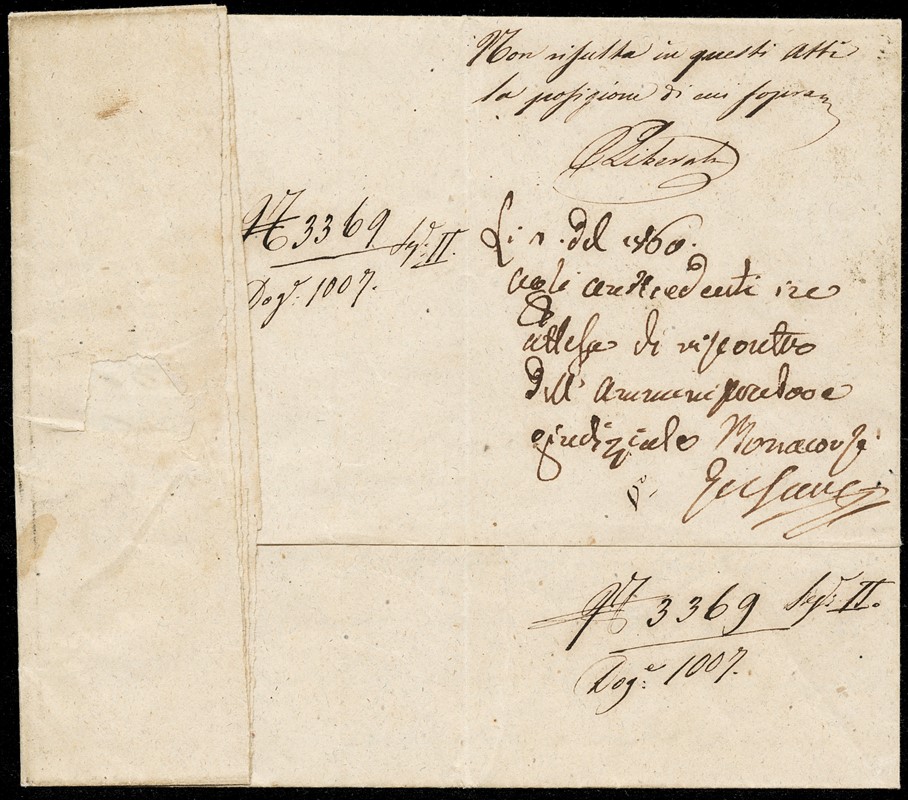 Non risulta in questi Atti
la posizione di cui sopra
Liberali
No 3369 Sez. II.
Dog. 1007.
del 1860.
agli antecedenti in
attesa di riscontro
dell' Amministratore
giudiziale Bonacorsi
No 3369 Sez. II.
Dog.e 1007.